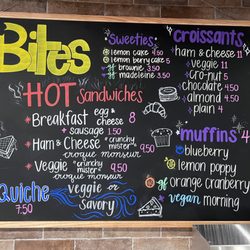 Bites
Sweeties
lemon cake 4.50
lemon berry cake 5
gf brownie 3.50
gf madeleine 3.50
HOT Sandwiches
Breakfast egg & cheese 8
+ sausage 1.50
Ham & Cheese crunchy mister 9
croque monsieur
Veggie crunchy mister 8
croque monsieur
Quiche
7.50
veggie or
Savory
croissants
ham & cheese 11
veggie 11
cro-nut 5
chocolate 4.50
almond 5
plain 4
muffins 4
blueberry
lemon poppy
gf orange cranberry
vegan morning